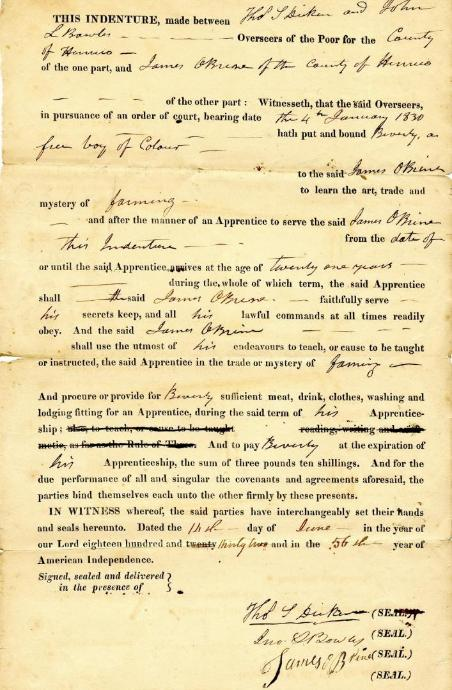 THIS INDENTURE, made between Tho S Dicken and John
L Bowles — Overseers of the Poor for the County
of Henrico
of the one part, and James OBrine of the County of Henrico
of the other part: Witnesseth, that the said Overseers,
in pursuance of an order of court, bearing date the 4th January 1830
hath put and bound Beverly, a
free boy of Colour
to the said James OBrine
to learn the art, trade and
mystery of farming
and after the manner of an Apprentice to serve the said James OBrine
this Indenture — from the date of
or until the said Apprentice arrives at the age of twenty one years
during the whole of which term, the said Apprentice
shall the said James OBrine faithfully serve
his secrets keep, and all his lawful commands at all times readily
obey. And the said James OBrine
shall use the utmost of his endeavours to teach, or cause to be taught
or instructed, the said Apprentice in the trade or mystery of faming
And procure or provide for Beverly sufficient meat, drink, clothes, washing and
lodging fitting for an Apprentice, during the said term of his Apprentice-
ship; also, to teach, or cause to be taught reading, writing and arith-
metic, as far as the Rule of Three. And to pay Beverly at the expiration of
his Apprenticeship, the sum of three pounds ten shillings. And for the
due performance of all and singular the covenants and agreements aforesaid, the
parties bind themselves each unto the other firmly by these presents.
IN WITNESS whereof, the said parties have interchangeably set their hands
and seals hereunto. Dated the day of June in the year of
our Lord eighteen hundred and twenty thirty two and in the 56th year of
American Independence.
Signed, sealed and delivered }
in the presence of }
Tho S Dicken (SEAL.)
Jno L Bowles (SEAL.)
James OBrine (SEAL.)
(SEAL.)